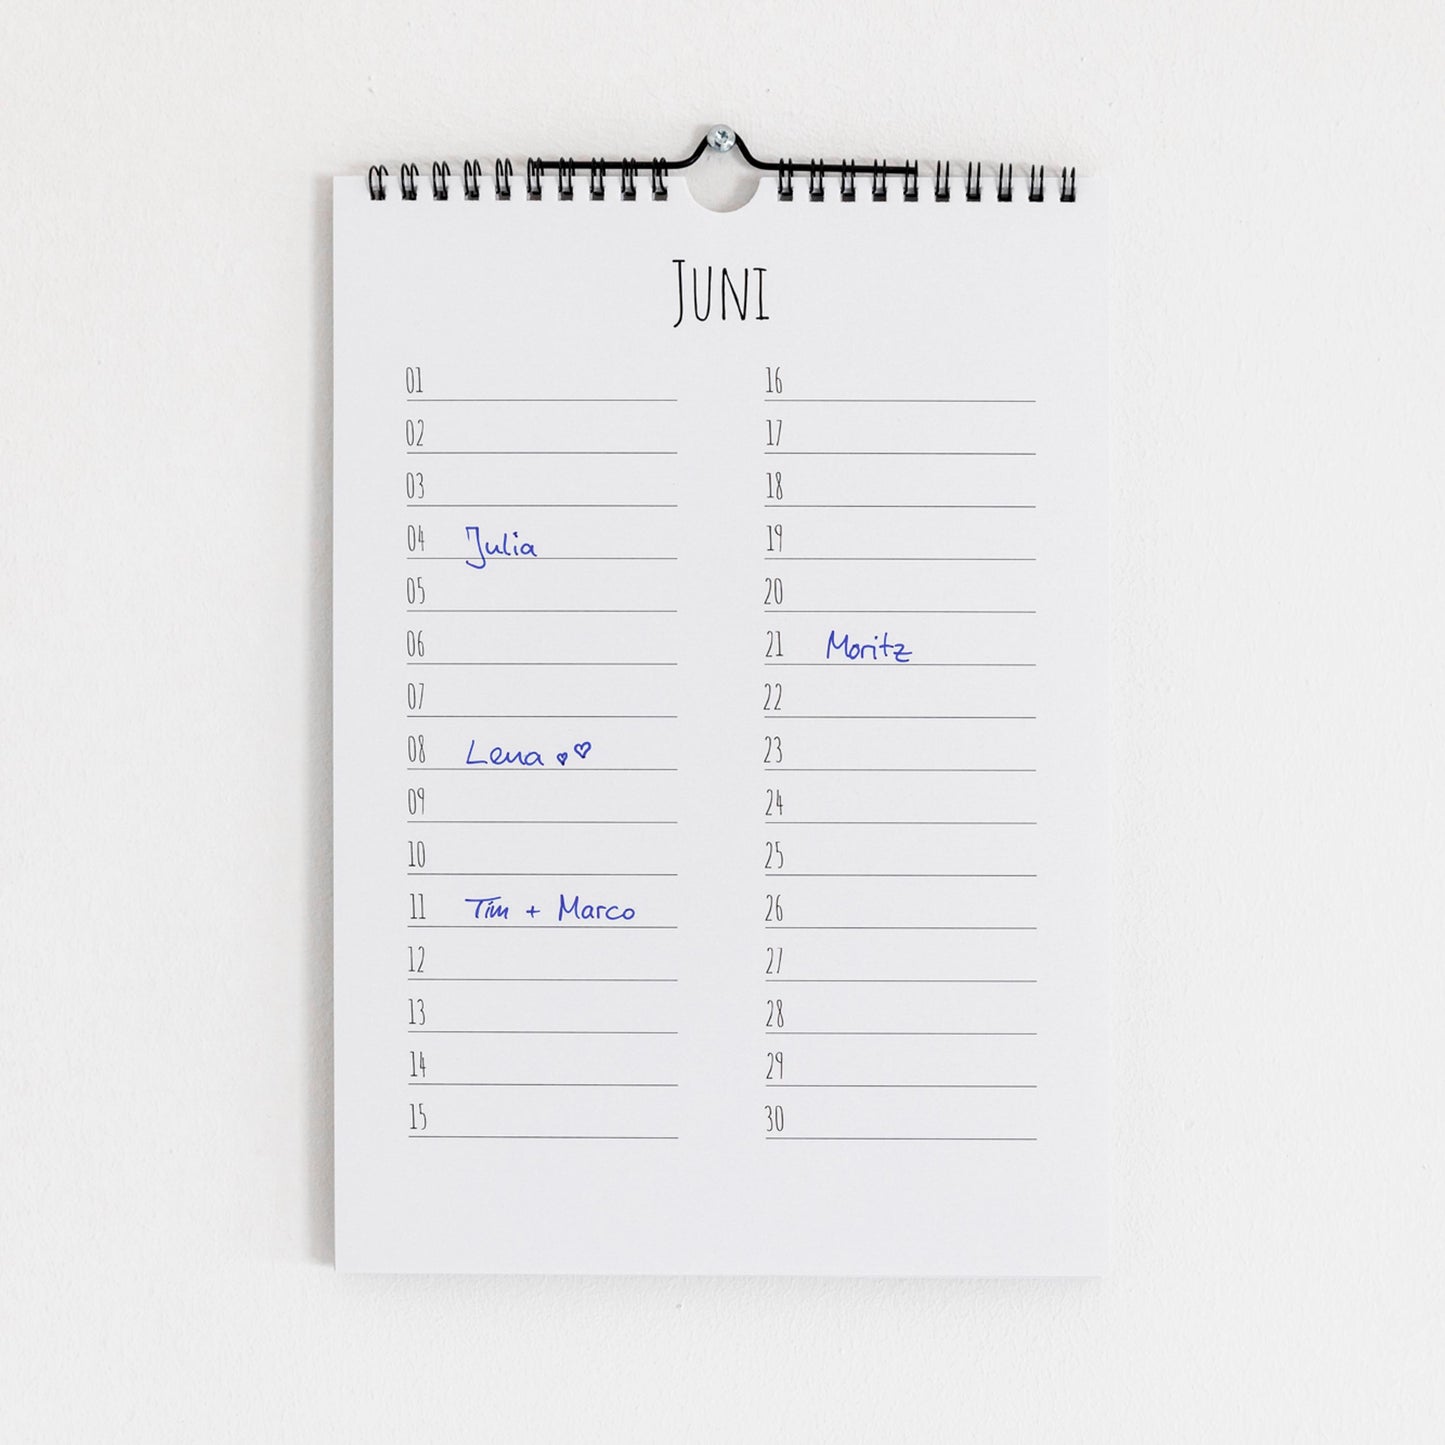 JUNI
01
02
03
04 Julia
05
06
07
08 Lena
09
10
11 Tim + Marco
12
13
14
15
16
17
18
19
20
21 Moritz
22
23
24
25
26
27
28
29
30